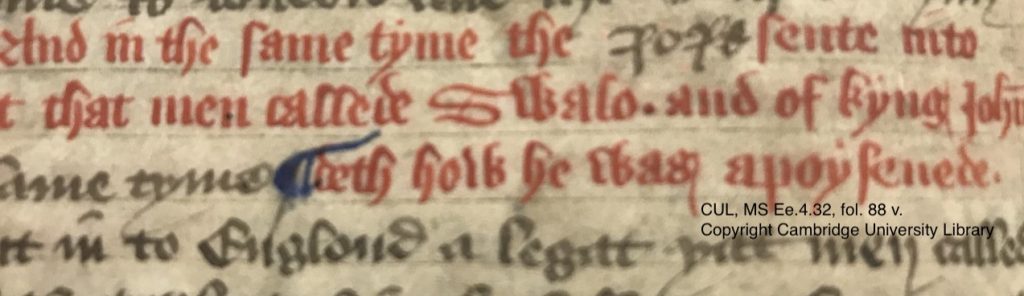 And in the same tyme the pope sente into
t that men callede Swalo. and of kyng John
ame tyme deth how he was apoysenede.
tt in to Englond a legatt þat men calle
CUL, MS Ee.4.32, fol. 88 v.
Copyright Cambridge University Library